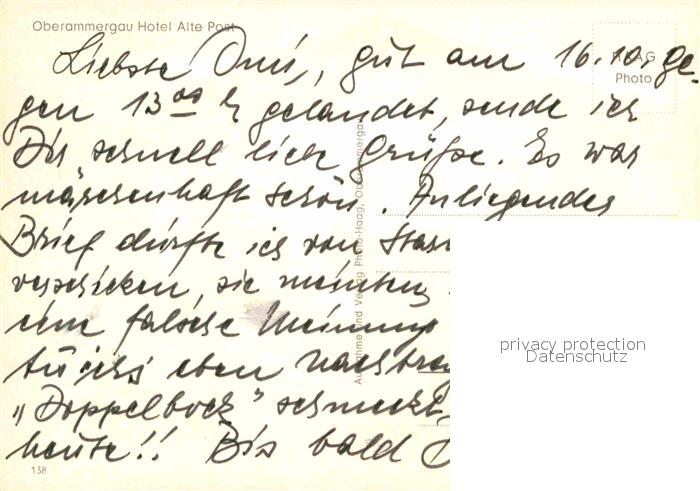 Oberammergau Hotel Alte Post
HAAG
Photo
Liebste Omi, gut am 16.10. ge-
gen 13 00 h gelandet, sende ich
Dir schnell liebe Grüße. Es war
märchenhaft schön. Anliegenden
Brief dürfte ich von
verschicken, sie meinten
eine falsche Meinung
eben
„Doppelbock" schmeckt
heute!! Bis bald
Aufnahme und Verlag Photo-Haag, Oberammergau
privacy protection
Datenschutz
138